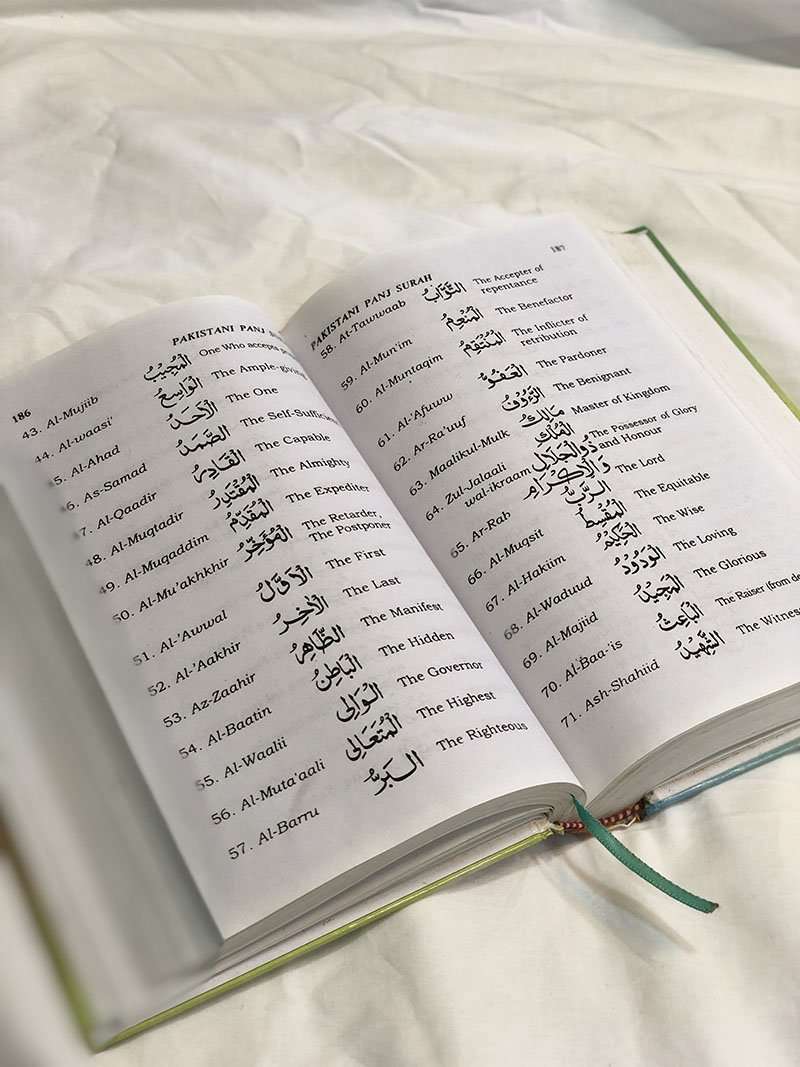 186
PAKISTANI PANJ
43. Al-Mujiib الْمُجِيْبُ One Who accepts
44. Al-waasi' الْوَاسِعُ The Ample-giving
5. Al-Ahad اَلْاَحَدُ The One
6. As-Samad الصَّمَدُ The Self-Sufficient
7. Al-Qaadir الْقَادِرُ The Capable
48. Al-Muqtadir الْمُقْتَدِرُ The Almighty
49. Al-Muqaddim الْمُقَدِّمُ The Expediter
50. Al-Mu'akhkhir الْمُؤَخِّرُ The Retarder,
The Postponer
51. Al-'Awwal الْاَوَّلُ The First
52. Al-'Aakhir الْاٰخِرُ The Last
53. Az-Zaahir الظَّاهِرُ The Manifest
54. Al-Baatin الْبَاطِنُ The Hidden
55. Al-Waalii الْوَالِي The Governor
56. Al-Muta'aali الْمُتَعَالِي The Highest
57. Al-Barru الْبَرُّ The Righteous
187
PAKISTANI PANJ SURAH
58. At-Tawwaab التَّوَّابُ The Accepter of
repentance
59. Al-Mun'im الْمُنْعِمُ The Benefactor
60. Al-Muntaqim الْمُنْتَقِمُ The Inflicter of
retribution
61. Al-'Afuww الْعَفُوُّ The Pardoner
62. Ar-Ra'uuf الرَّؤُوْفُ The Benignant
63. Maalikul-Mulk مَالِكُ الْمُلْكِ Master of Kingdom
64. Zul-Jalaali ذُوالْجَلَالِ The Possessor of Glory
wal-ikraam وَالْاِكْرَامِ and Honour
65. Ar-Rab الرَّبُّ The Lord
66. Al-Muqsit الْمُقْسِطُ The Equitable
67. Al-Hakiim الْحَكِيْمُ The Wise
68. Al-Waduud الْوَدُوْدُ The Loving
69. Al-Majiid الْمَجِيْدُ The Glorious
70. Al-Baa-'is الْبَاعِثُ The Raiser (from
71. Ash-Shahiid الشَّهِيْدُ The Witness